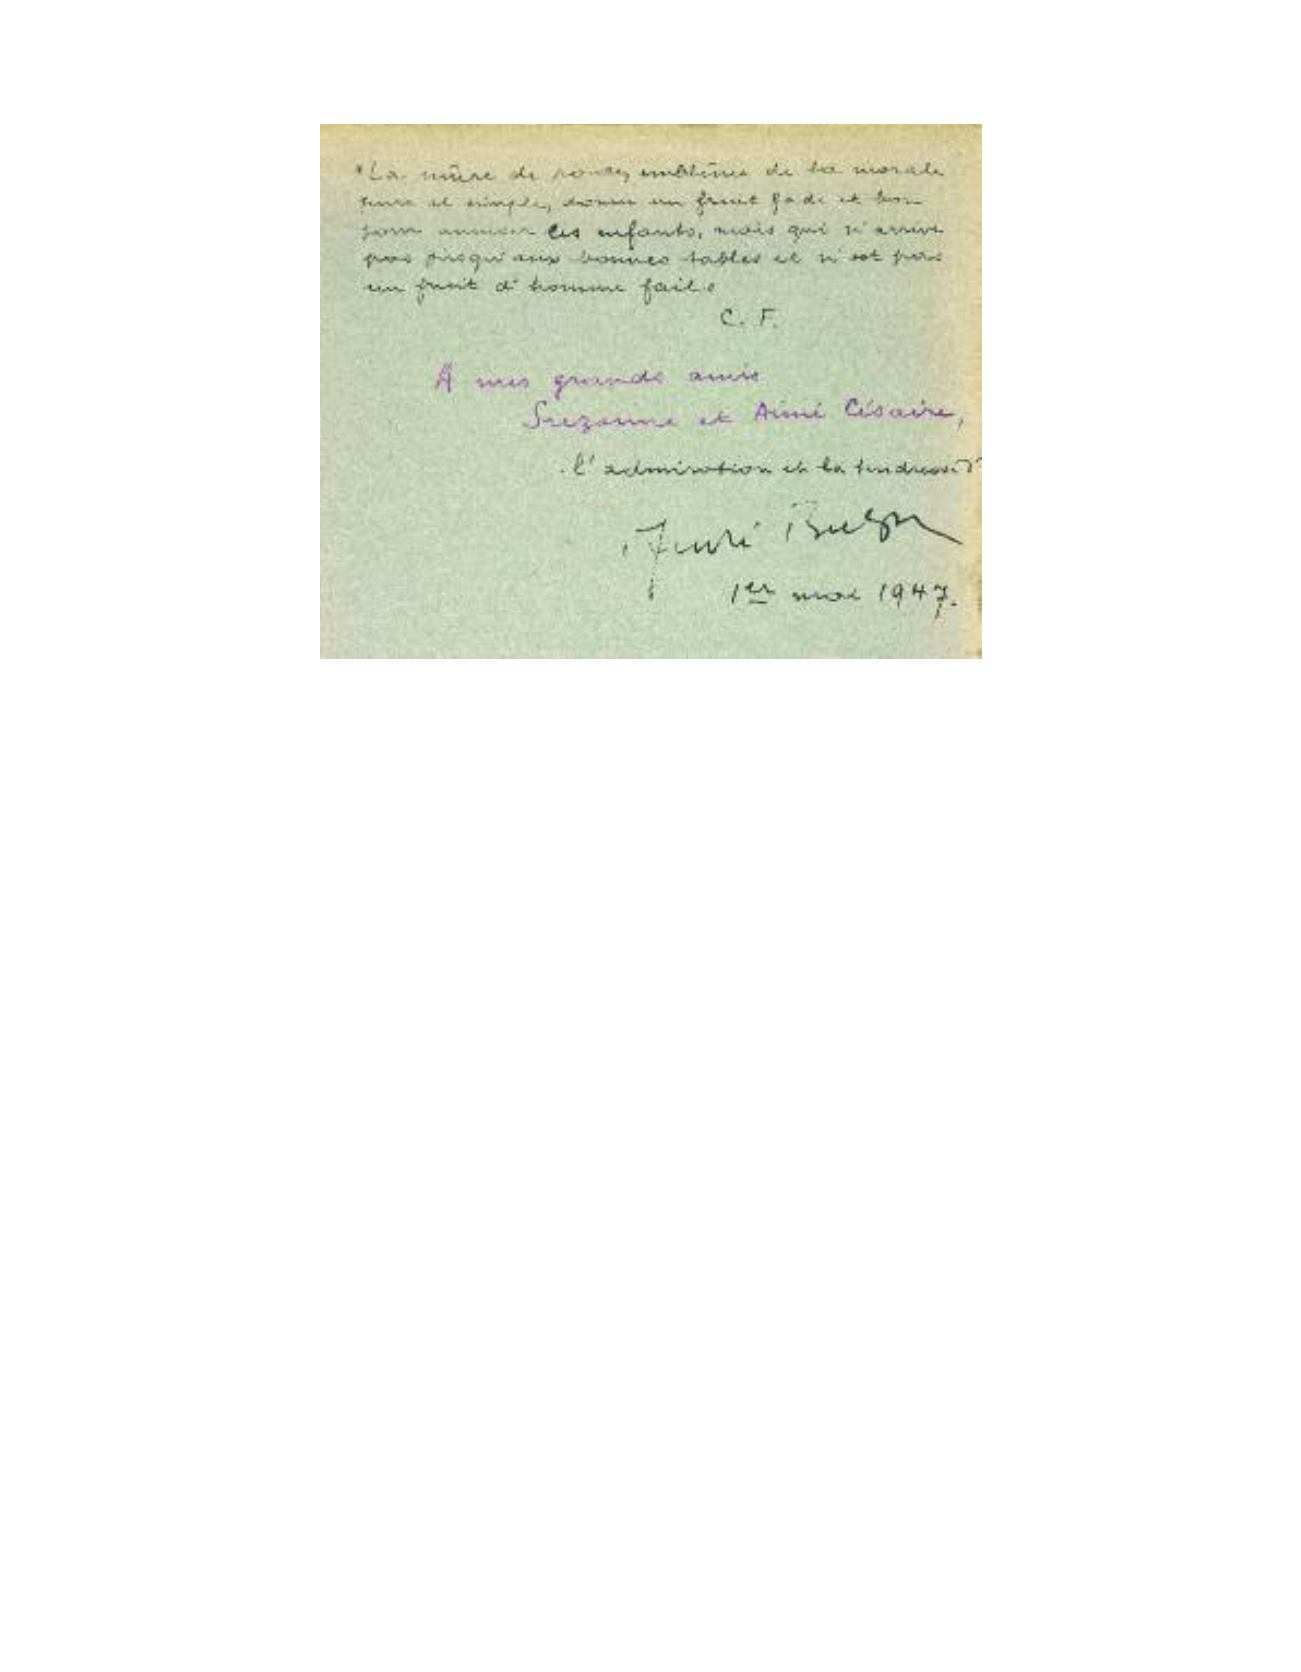 "La mûre de ronce, emblème de la morale
pure et simple, donne un fruit fade et bon
pour amuser les enfants, mais qui n'arrive
pas jusqu'aux bonnes tables et n'est pas
un fruit d'homme fait.
C. F.
A mes grands amis
Suzanne et Aimé Césaire,
l'admiration et la tendresse d'
André Breton
1er mai 1947.